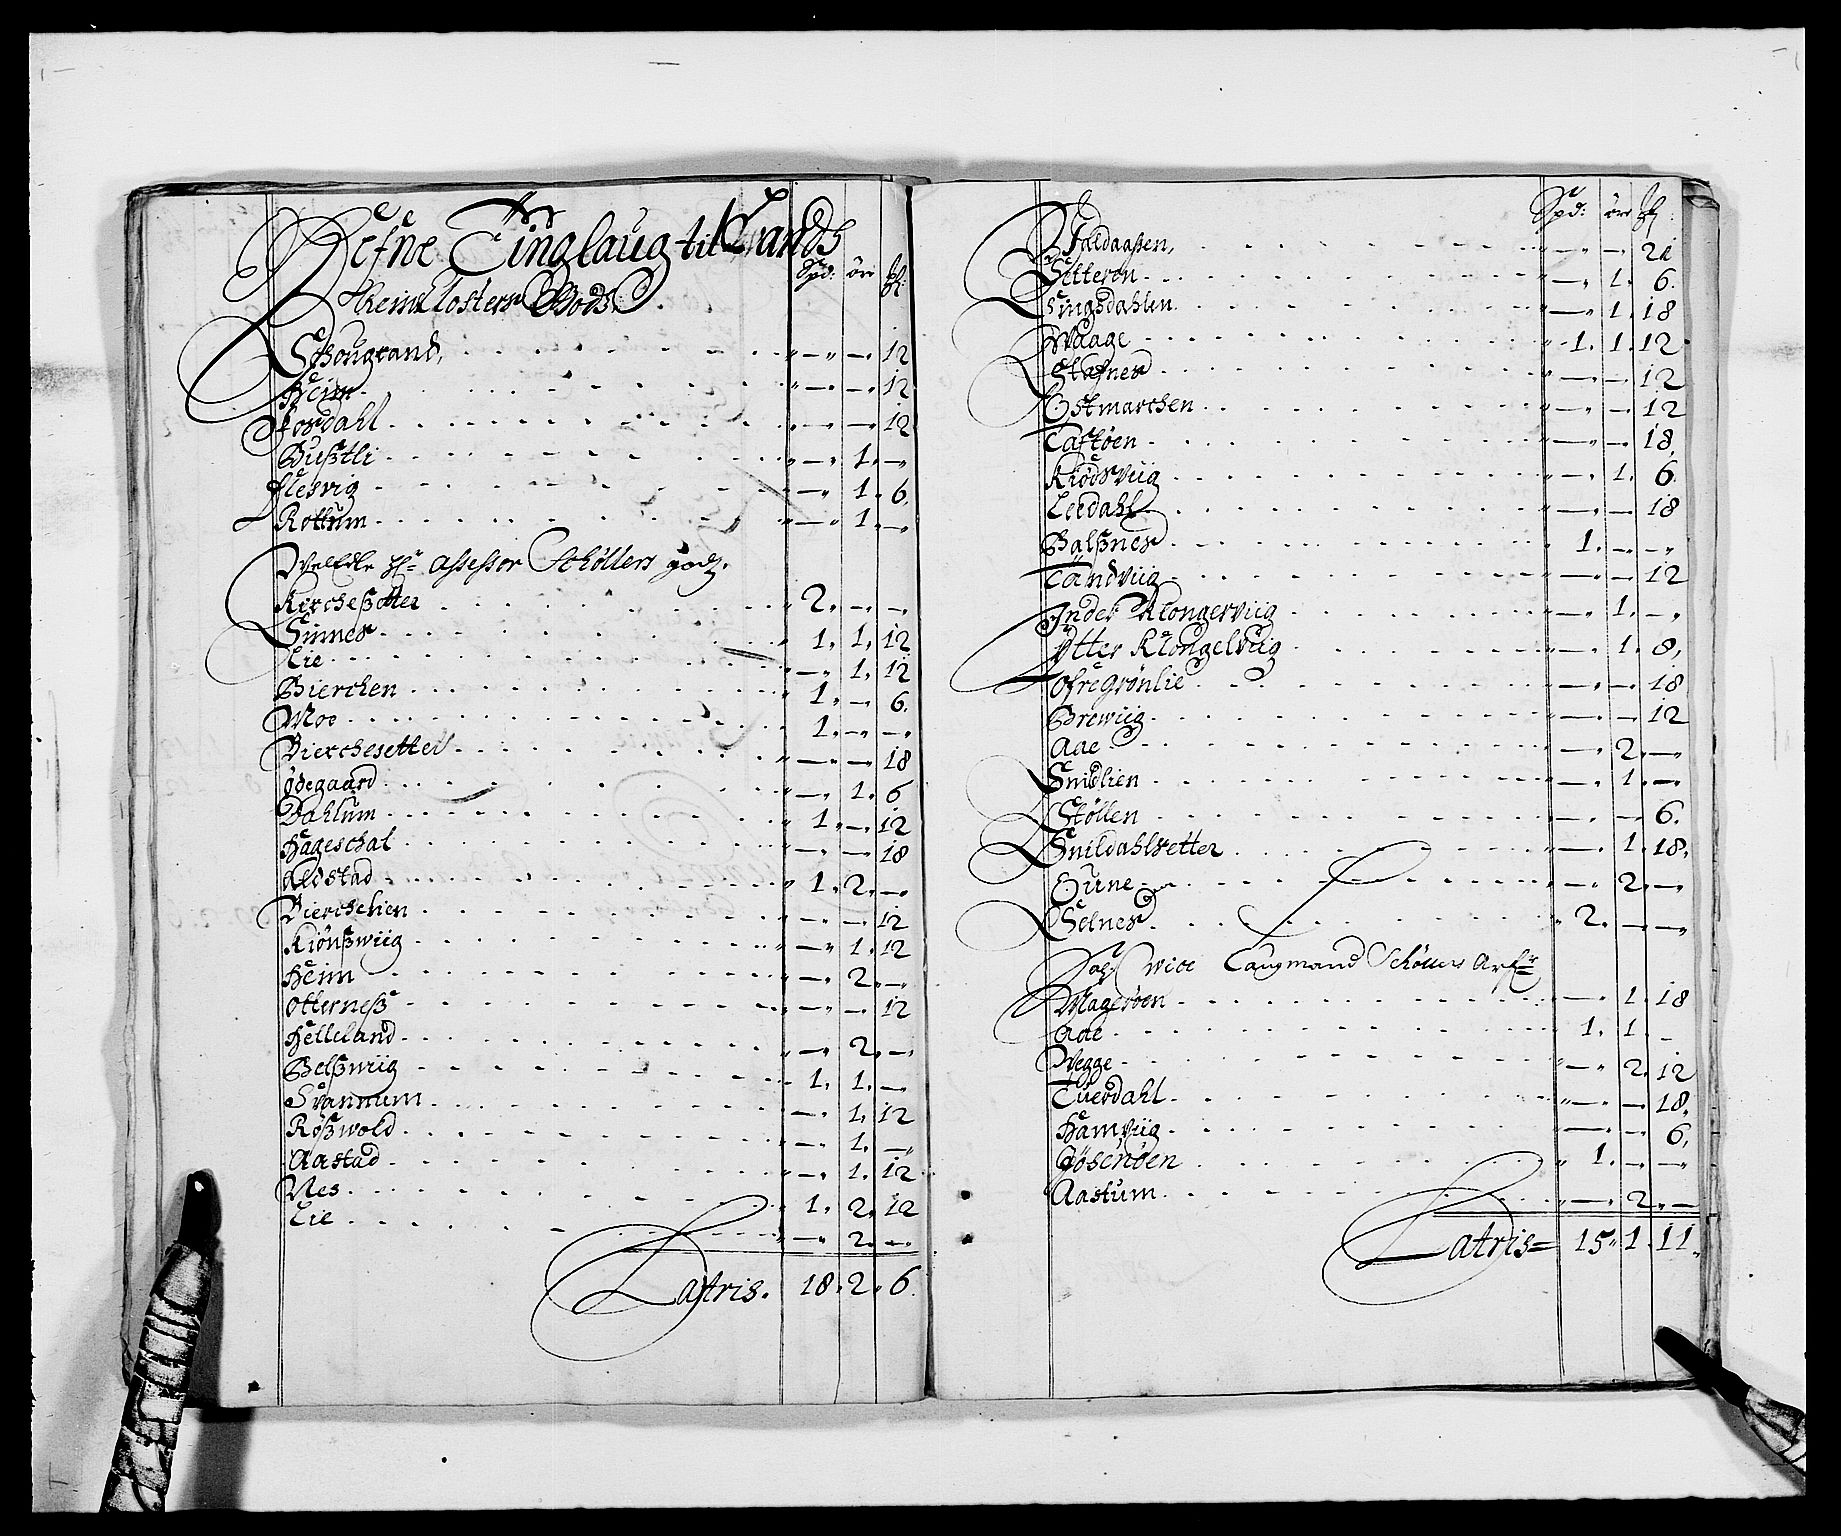 Hefne Tinglaug til Lands
Spd: ör
Reins Closters Gods
Schougrand, - - 12
Heim - - 12
Fosdahl - - 12
Bußtli - 1. -
Flesvig - 1. 6.
Rottum - 1. -
Velledle Hr assessor Schøllers godz.
Kircheßetter 2. - -
Sinnes 1. 1. 12
Lie - 1. 12
Bierchen 1. - 6.
Moe 1. - -
Bierchesetter - - 18
Ødegaard - 1. 6
Dahlum 1. - 12
Hageschal - - 18
Aldstad 1. 2. -
Bierchelien - - 12
Kiönßwiig - 1. 12
Heim - 2. -
Otterneß - - 12
Helleland - 2. -
Belßwiig 1. 1. -
Svannum - 1. 12
Rößwold - 1. -
Aastad - 1. 12
Nes 1. 2. 12
Lie - 2. -
Latris. 18. 2. 6.
Spd: ör
Faldaaßen, - - 21
Setteren - 1. 6.
Singsdahlen - 1. 18
Waage 1. 1. 12
Stafnes - - 12
Ostmarchen - - 12
Taftöen - - 18
Kiödsviig - 1. 6.
Leedahl - - 18
Balßnes 1. - -
Tandviig - - 12
Inder Klongerviig - 1. -
Ytter Klongelviig - 1. 8,
Ofre Grønlie - - 18
Brewiig - - 12
Aae - 2. -
Snildlien - 1. -
Stöllen - - 6.
Snildahlsetter - 1. 18.
Ourne - 2. -
Selnes 2. - -
Sal: wice Laugmand Schöllers Arf:
Magerøen - 1. 18
Aae 1. 1. -
Vegge - 2. 12
Tuerdahl - - 18.
Hamviig - - 6.
Jösenöen 1. - -
Aastum - 2. -
Latris 15. 1. 11.